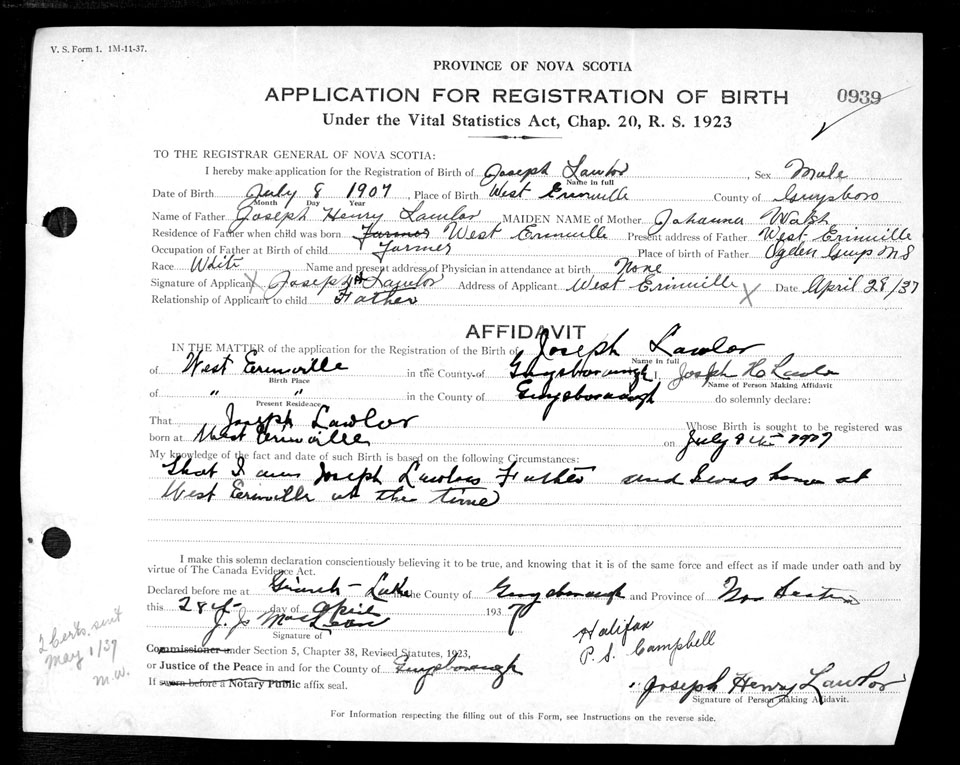 V. S. Form 1. 1M-11-37.
PROVINCE OF NOVA SCOTIA
APPLICATION FOR REGISTRATION OF BIRTH
0939
Under the Vital Statistics Act, Chap. 20, R. S. 1923
TO THE REGISTRAR GENERAL OF NOVA SCOTIA:
I hereby make application for the Registration of Birth of Joseph Lawlor Sex Male
Name in full
Date of Birth July 8 1907 Place of Birth West Erinville County of Guysboro
Month Day Year
Name of Father Joseph Henry Lawlor MAIDEN NAME of Mother Johanna Walsh
Residence of Father when child was born Farmer West Erinville Present address of Father West Erinville
Occupation of Father at Birth of child Farmer Place of birth of Father Ogden Guys N S
Race White Name and present address of Physician in attendance at birth None
Signature of Applicant Joseph H Lawlor Address of Applicant West Erinville Date April 28/37
Relationship of Applicant to child Father
AFFIDAVIT
IN THE MATTER of the application for the Registration of the Birth of Joseph Lawlor
Name in full
of West Erinville in the County of Guysborough I, Joseph H Lawlor
Birth Place Name of Person Making Affidavit
of " " in the County of Guysborough do solemnly declare:
Present Residence
That Joseph Lawlor Whose Birth is sought to be registered was
born at West Erinville on July 8 1907
My knowledge of the fact and date of such Birth is based on the following Circumstances:
That I am Joseph Lawlors Father and I was home at
West Erinville at the time
I make this solemn declaration conscientiously believing it to be true, and knowing that it is of the same force and effect as if made under oath and by
virtue of The Canada Evidence Act.
Declared before me at Lake in the County of Guysborough and Province of Nova Scotia
this 28th day of April 1937
J. J. MacLean
Signature of
Halifax
P. S. Campbell
Commissioner under Section 3, Chapter 38, Revised Statutes, 1923,
or Justice of the Peace in and for the County of Guysborough
If sworn before a Notary Public affix seal.
Joseph Henry Lawlor
Signature of Person making Affidavit.
2 certs. sent
May 1/39
M.W.
For Information respecting the filling out of this Form, see Instructions on the reverse side.